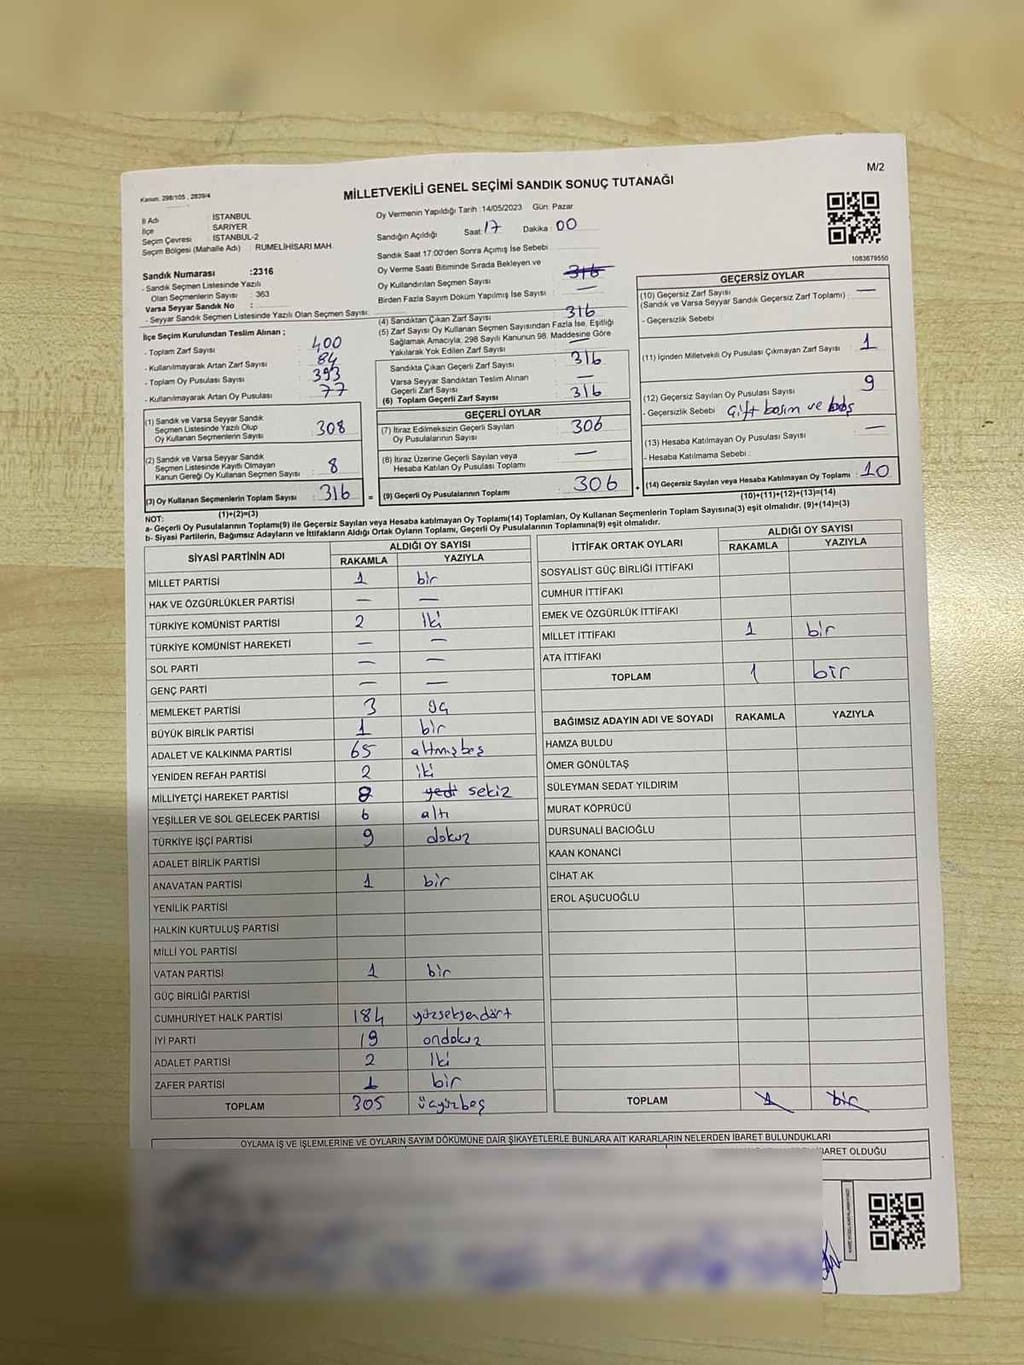 M/2
Kanun: 298/105 , 2839/4
MİLLETVEKİLİ GENEL SEÇİMİ SANDIK SONUÇ TUTANAĞI
İl Adı : İSTANBUL
İlçe : SARIYER
Seçim Çevresi : İSTANBUL-2
Seçim Bölgesi (Mahalle Adı) : RUMELİHİSARI MAH.
Oy Vermenin Yapıldığı Tarih :14/05/2023 Gün: Pazar
Sandığın Açıldığı Saat: 17 Dakika : 00
Sandık Saat 17:00'den Sonra Açımış İse Sebebi
Oy Verme Saati Bitiminde Sırada Bekleyen ve
Oy Kullandırılan Seçmen Sayısı 316
Birden Fazla Sayım Döküm Yapılmış İse Sayısı : —
1083679550
Sandık Numarası :2316
- Sandık Seçmen Listesinde Yazılı
Olan Seçmenlerin Sayısı : 363
Varsa Seyyar Sandık No :
- Seyyar Sandık Seçmen Listesinde Yazılı Olan Seçmen Sayısı:
İlçe Seçim Kurulundan Teslim Alınan ;
- Toplam Zarf Sayısı 400
- Kullanılmayarak Artan Zarf Sayısı 84
- Toplam Oy Pusulası Sayısı 393
- Kullanılmayarak Artan Oy Pusulası 77
(1) Sandık ve Varsa Seyyar Sandık
Seçmen Listesinde Yazılı Olup
Oy Kullanan Seçmenlerin Sayısı 308
(2) Sandık ve Varsa Seyyar Sandık
Seçmen Listesinde Kayıtlı Olmayan
Kanun Gereği Oy Kullanan Seçmen Sayısı 8
(3) Oy Kullanan Seçmenlerin Toplam Sayısı 316
(1)+(2)=(3)
(4) Sandıktan Çıkan Zarf Sayısı 316
(5) Zarf Sayısı Oy Kullanan Seçmen Sayısından Fazla İse, Eşitliği
Sağlamak Amacıyla; 298 Sayılı Kanunun 98. Maddesine Göre
Yakılarak Yok Edilen Zarf Sayısı —
Sandıkta Çıkan Geçerli Zarf Sayısı 316
Varsa Seyyar Sandıktan Teslim Alınan
Geçerli Zarf Sayısı —
(6) Toplam Geçerli Zarf Sayısı 316
GEÇERLİ OYLAR
(7) İtiraz Edilmeksizin Geçerli Sayılan
Oy Pusulalarının Sayısı 306
(8) İtiraz Üzerine Geçerli Sayılan veya
Hesaba Katılan Oy Pusulası Toplamı —
= (9) Geçerli Oy Pusulalarının Toplamı 306
GEÇERSİZ OYLAR
(10) Geçersiz Zarf Sayısı
(Sandık ve Varsa Seyyar Sandık Geçersiz Zarf Toplamı) —
- Geçersizlik Sebebi
(11) İçinden Milletvekili Oy Pusulası Çıkmayan Zarf Sayısı 1
(12) Geçersiz Sayılan Oy Pusulası Sayısı 9
- Geçersizlik Sebebi Çift basım ve boş
(13) Hesaba Katılmayan Oy Pusulası Sayısı —
- Hesaba Katılmama Sebebi :
(14) Geçersiz Sayılan veya Hesaba Katılmayan Oy Toplamı 10
(10)+(11)+(12)+(13)=(14)
NOT:
a- Geçerli Oy Pusulalarının Toplamı(9) ile Geçersiz Sayılan veya Hesaba katılmayan Oy Toplamı(14) Toplamları, Oy Kullanan Seçmenlerin Toplam Sayısına(3) eşit olmalıdır. (9)+(14)=(3)
b- Siyasi Partilerin, Bağımsız Adayların ve İttifakların Aldığı Ortak Oyların Toplamı, Geçerli Oy Pusulalarının Toplamına(9) eşit olmalıdır.
SİYASİ PARTİNİN ADI ALDIĞI OY SAYISI
RAKAMLA YAZIYLA
MİLLET PARTİSİ 1 bir
HAK VE ÖZGÜRLÜKLER PARTİSİ — —
TÜRKİYE KOMÜNİST PARTİSİ 2 iki
TÜRKİYE KOMÜNİST HAREKETİ — —
SOL PARTİ — —
GENÇ PARTİ — —
MEMLEKET PARTİSİ 3 üç
BÜYÜK BİRLİK PARTİSİ 1 bir
ADALET VE KALKINMA PARTİSİ 65 altmışbeş
YENİDEN REFAH PARTİSİ 2 iki
MİLLİYETÇİ HAREKET PARTİSİ 8 yedi sekiz
YEŞİLLER VE SOL GELECEK PARTİSİ 6 altı
TÜRKİYE İŞÇİ PARTİSİ 9 dokuz
ADALET BİRLİK PARTİSİ
ANAVATAN PARTİSİ 1 bir
YENİLİK PARTİSİ
HALKIN KURTULUŞ PARTİSİ
MİLLİ YOL PARTİSİ
VATAN PARTİSİ 1 bir
GÜÇ BİRLİĞİ PARTİSİ
CUMHURİYET HALK PARTİSİ 184 yüzseksendört
İYİ PARTİ 19 ondokuz
ADALET PARTİSİ 2 iki
ZAFER PARTİSİ 1 bir
TOPLAM 305 üçyüzbeş
İTTİFAK ORTAK OYLARI ALDIĞI OY SAYISI
RAKAMLA YAZIYLA
SOSYALİST GÜÇ BİRLİĞİ İTTİFAKI
CUMHUR İTTİFAKI
EMEK VE ÖZGÜRLÜK İTTİFAKI
MİLLET İTTİFAKI 1 bir
ATA İTTİFAKI
TOPLAM 1 bir
BAĞIMSIZ ADAYIN ADI VE SOYADI RAKAMLA YAZIYLA
HAMZA BULDU
ÖMER GÖNÜLTAŞ
SÜLEYMAN SEDAT YILDIRIM
MURAT KÖPRÜCÜ
DURSUNALİ BACIOĞLU
KAAN KONANCİ
CİHAT AK
EROL AŞUCUOĞLU
TOPLAM 1 bir
OYLAMA İŞ VE İŞLEMLERİNE VE OYLARIN SAYIM DÖKÜMÜNE DAİR ŞİKAYETLERLE BUNLARA AİT KARARLARIN NELERDEN İBARET BULUNDUKLARI
İBARET OLDUĞU